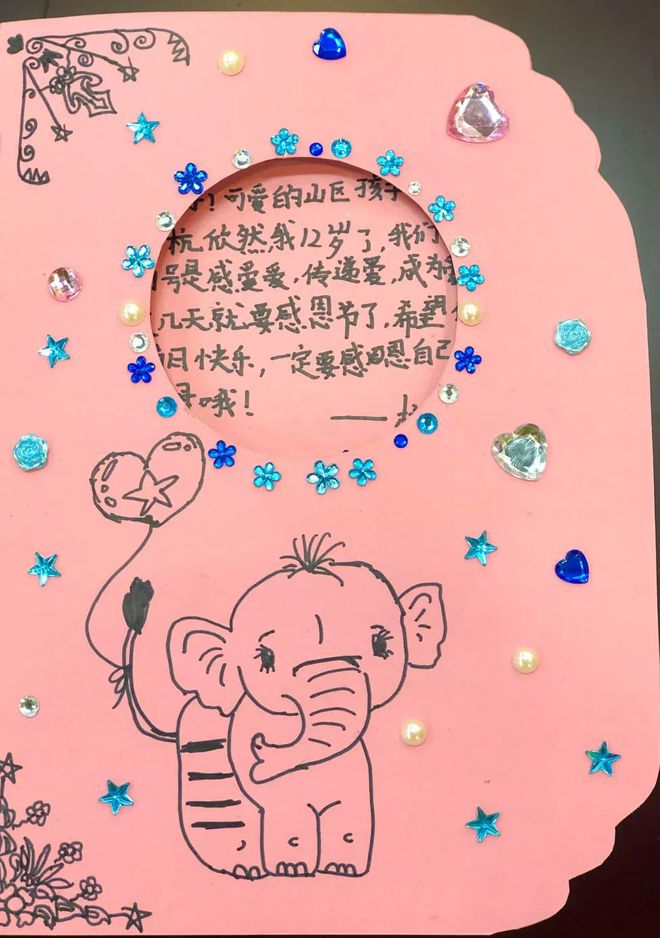 ！可爱的山区孩子
杭欣然，我12岁了，我们
号是感量爱，传递爱，成为
几天就要感恩节了，希望
日快乐，一定要感恩自己
哦！ ——